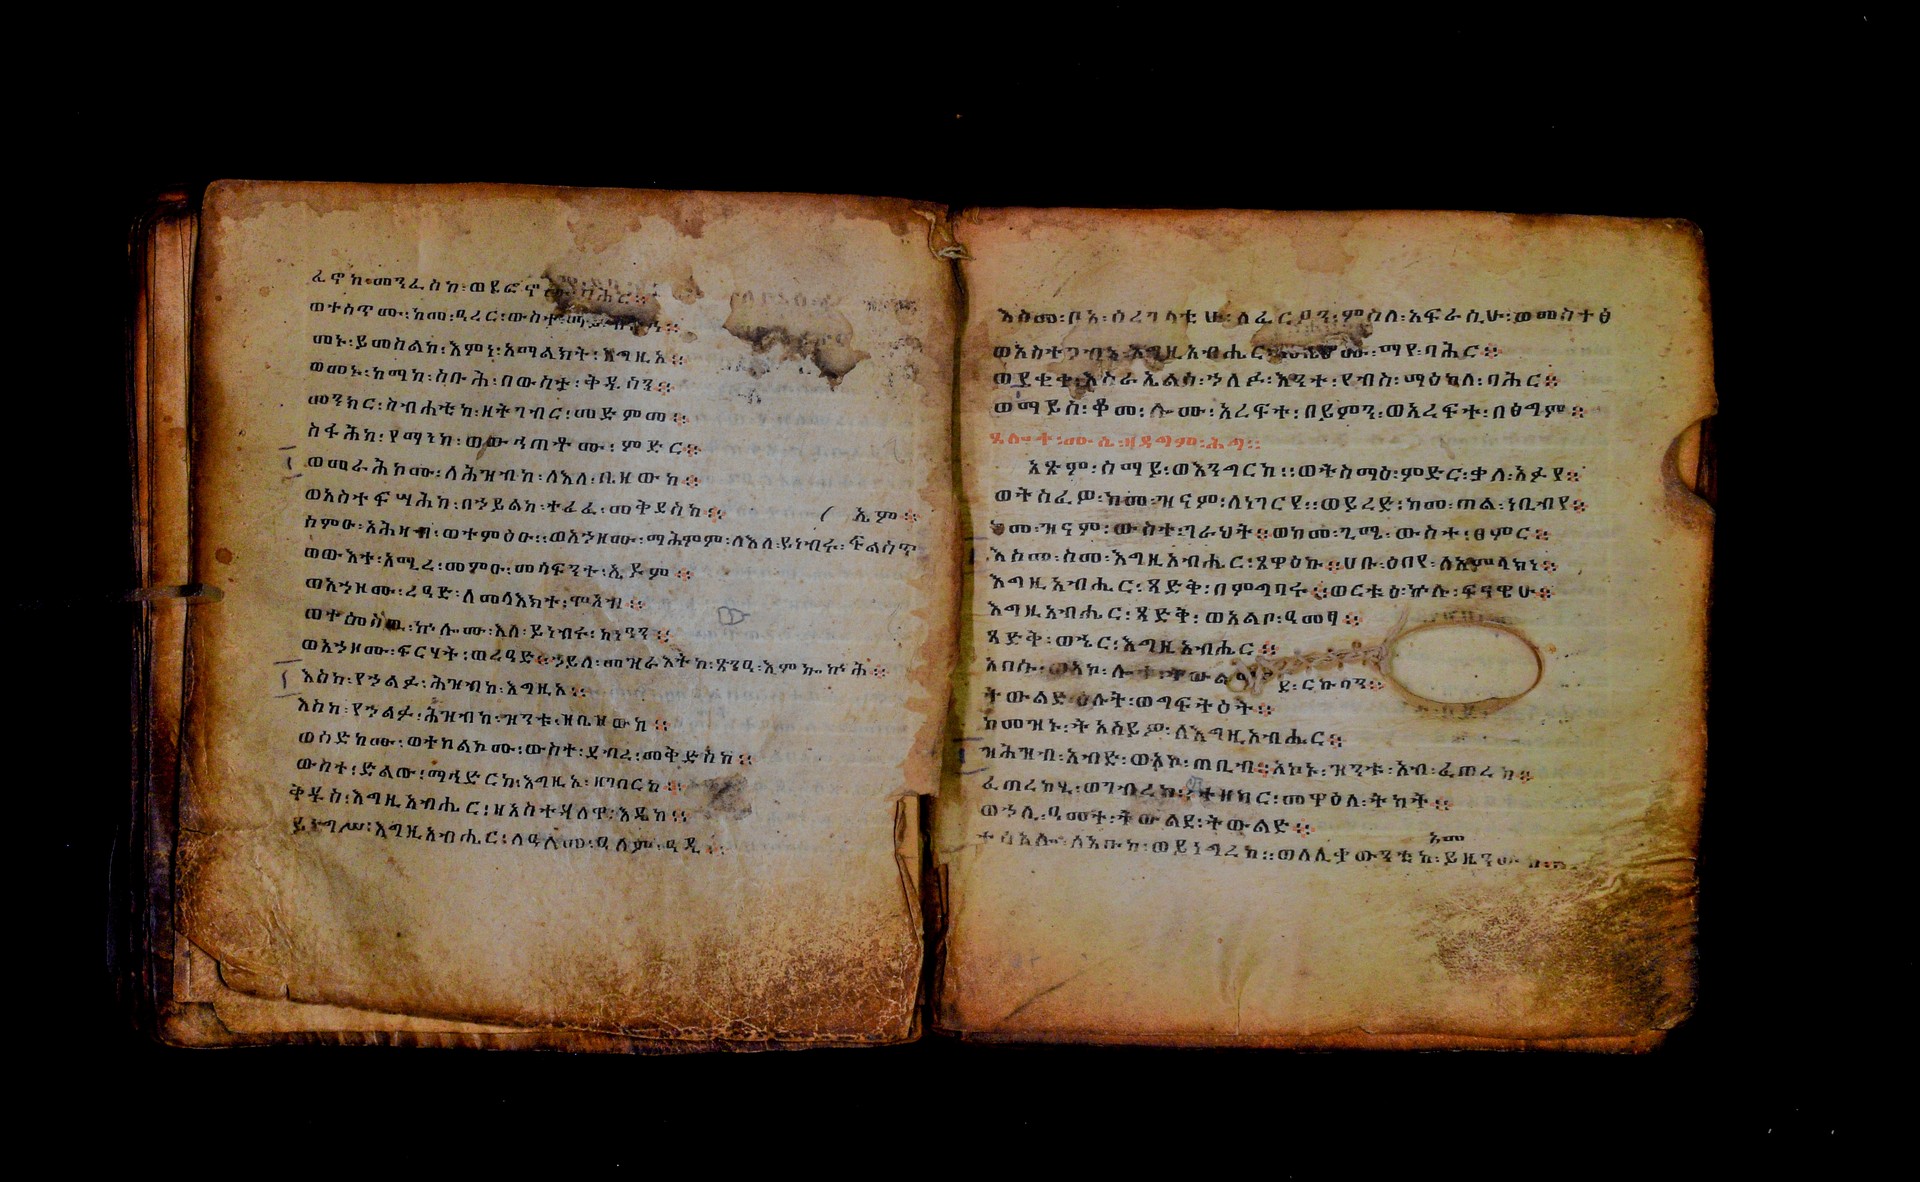 ፈኖከ፡መንፈስከ፡ወይፎኖ ባሕር።
ወተሰጥሙ፡ከመ፡ዓረር፡ውስተ፡
መኑ፡ይመስልከ፡እምነ፡አማልክት፡እግዚአ።
ወመኑ፡ከማከ፡ስቡሕ፡በውስተ፡ቅዱሳን።
መንክር፡ስብሐቲከ፡ዘትገብር፡መድምመ።
ስፋሕከ፡የማንከ፡ወውኅጠቶሙ፡ምድር።
ወመራሕኮሙ፡ለሕዝብከ፡ለእለ፡ቤዘውከ።
ወአስተፍሣሕከ፡በኃይልከ፡ተፈፈ፡መቅደስከ።
( ኢም።
ስምዑ፡አሕዛብ፡ወተምዕዑ።ወአኀዞሙ፡ማሕምም፡ለእለ፡ይነብሩ፡ፍልስጥ
ወውእተ፡አሚረ፡መምዑ፡መሳፍንተ፡ኤዶም።
ወአኀዞሙ፡ረዓድ፡ለመላእክተ፡ሞአብ።
ወተመስዉ፡ኵሎሙ፡እለ፡ይነብሩ፡ከነዓን።
ወአኀዞሙ፡ፍርሃት፡ወረዓድ።ኃይለ፡መዝራእትከ፡ጽንዒ፡እምኰኵሕ።
እስከ፡የኃልፉ፡ሕዝብከ፡እግዚአ።
እስከ፡የኃልፉ፡ሕዝብከ፡ዝንቱ፡ዘቤዘውከ።
ወስድኮሙ፡ወተክልኮሙ፡ውስተ፡ደብረ፡መቅድስከ።
ውስተ፡ድልው፡ማኅድርከ፡እግዚአ፡ዘገበርከ።
ቅዱስ፡እግዚአብሔር፡ዘአስተዳለዋ፡እዴከ።
ይነግሥ፡እግዚአብሔር፡ለዓለመ፡ዓለም፡ዓዲ።
እስመ፡ቦአ፡ሰረገላቲሁ፡ለፈርዖን፡ምስለ፡አፍራሲሁ፡ወመስተፅ
ወአስተጋብአ፡እግዚአብሔር፡ ማየ፡ባሕር።
ወደቂቀ፡እስራኤልሰ፡ኃለፉ፡እንተ፡የብስ፡ማዕከለ፡ባሕር።
ወማይሰ፡ቆመ፡ሎሙ፡አረፍተ፡በይምን፡ወአረፍተ፡በፅግም።
ጸሎተ፡ሙሴ፡ዘዳግም፡ሕግ።
አጽምዕ፡ሰማይ፡ወእንግርከ።ወትስማዕ፡ምድር፡ቃለ፡አፉየ።
ወትሰፈው፡ከመ፡ዝናም፡ለነገርየ።ወይረድ፡ከመ፡ጠል፡ነቢብየ።
ከመ፡ዝናም፡ውስተ፡ገራህት።ወከመ፡ጊሜ፡ውስተ፡ፀምር።
እስመ፡ስመ፡እግዚአብሔር፡ጸዋዕኩ።ሀቡ፡ዕበየ፡ለአምላክነ።
እግዚአብሔር፡ጻድቅ፡በምግባሩ።ወርቱዕ፡ኵሉ፡ፍናዊሁ።
እግዚአብሔር፡ጻድቅ፡ወአልቦ፡ዓመፃ።
ጻድቅ፡ወኄር፡እግዚአብሔር።
አበሱ፡ወአኮ፡ሎቱ፡ትውልድ ርኩሳን።
ትውልድ፡ዕሉት፡ወግፍትዕት።
ከመዝኑ፡ትአስይዎ፡ለእግዚአብሔር።
ዝሕዝብ፡አብድ፡ወአኮ፡ጠቢብ።አኮኑ፡ዝንቱ፡አብ፡ፈጠረከ።
ፈጠረከሂ፡ወገብረከ።ተዘከር፡መዋዕለ፡ትካት።
ወኃሊ፡ዓመተ፡ትውልደ፡ትውልድ።
አመ
ተሰአሎ፡ለአቡከ፡ወይነግረከ።ወለሊቃውንቲከ፡ይዜንዉከ።